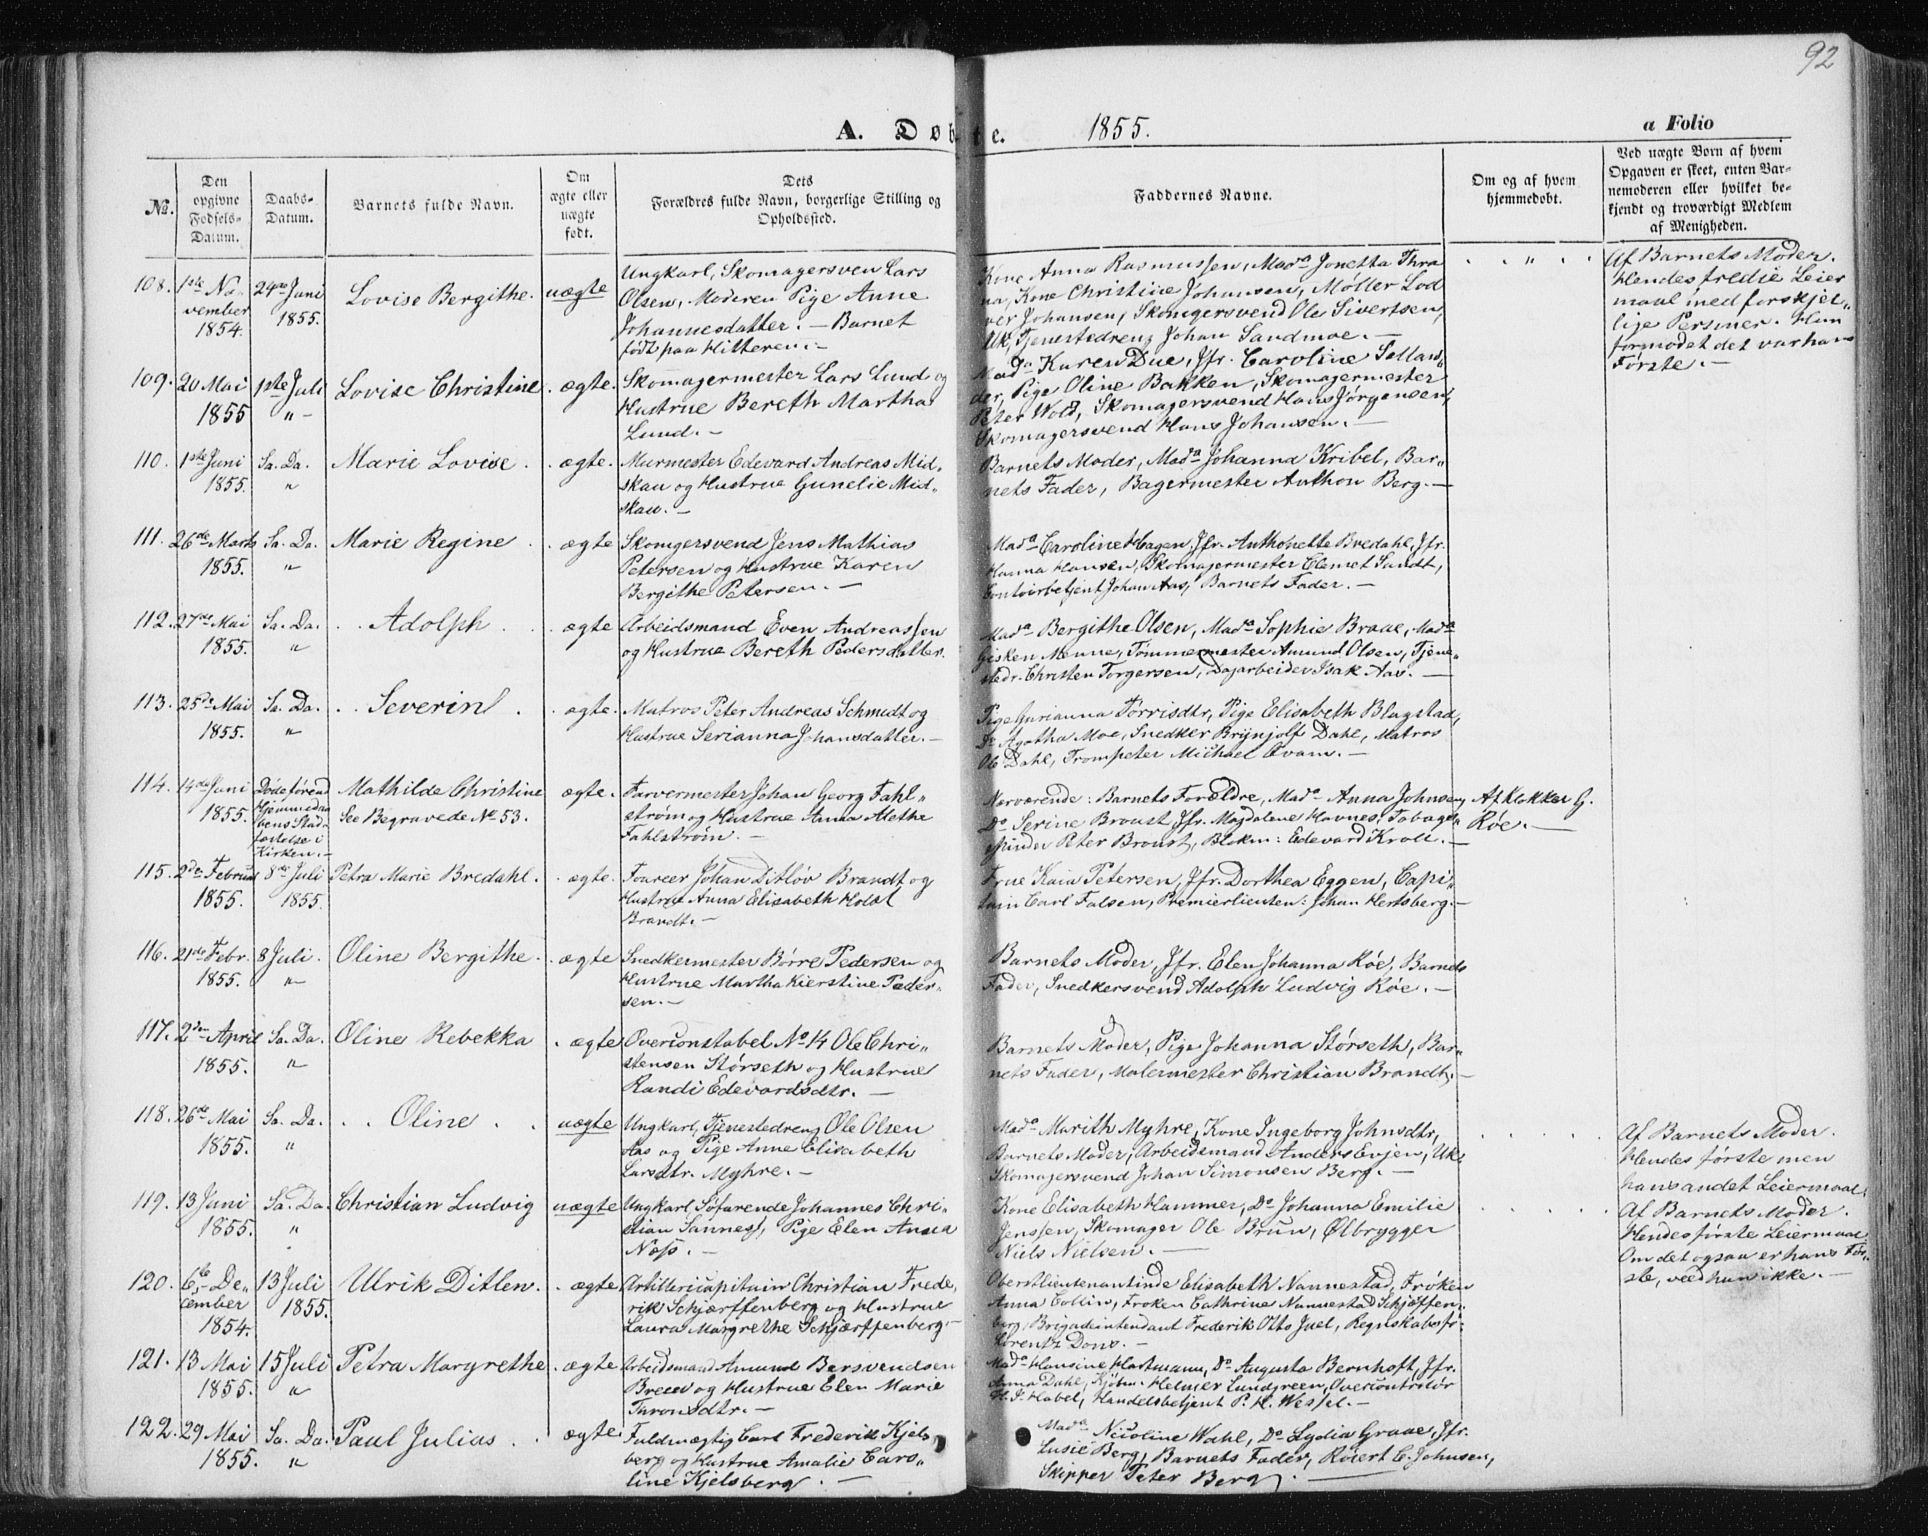 92
A. Døbte. 1855. a Folio
No.
Den opgivne Fødsels-Datum.
Daabs-Datum.
Barnets fulde Navn.
Om ægte eller uægte født.
Dets Forældres fulde Navn, borgerlige Stilling og Opholdssted.
Faddernes Navne.
Om og af hvem hjemmedøbt.
Ved uægte Børn af hvem Opgaven er skeet, enten Barnemoderen eller hvilket bekjendt og troværdigt Medlem af Menigheden.
108. 1ste November 1854. 24de Juni 1855. Lovise Bergithe. uægte
Ungkarl, Skomagersven Lars
Olsen, Moderen Pige Anne
Johannesdatter. — Barnet
født paa Hitteren. —
Kone Anna Rasmussen, Mada Jonetta Thra
na, Kone Christine Johansen, Møller Lod
ver Johansen, Skomgersvend Ole Sivertsen,
Uk, Tjenestedreng Johan Sandmoe. —
Af Barnets Moder.
Hendes tredie Leier
maal med forskjel„
lige Personer. Hun
formodet det var hans
Første. —
109. 20 Mai 1855 1ste Juli „ Lovise Christine. ægte.
Skomagermester Lars Lund og
Hustrue Bereth Martha
Lund. —
Mada Karen Due, Jfr. Caroline Selland
der, Pige Oline Bakken, Skomagermester
Peter Wold, Skomagersvend Hans Jørgensen,
Skomagersvend Hans Johansen. —
110. 1ste Juni 1855. Sa. Da. „ Marie Lovise. ægte.
Murmester Edevard Andreas Mid„
skau og Hustrue Gunelie Mid„
skau. —
Barnets Moder, Mada Johanna Kribel, Bar„
nets Fader, Bagermester Anthon Berg. —
111. 26de Marts 1855. Sa. Da. „ Marie Regine. ægte
Skomgersvend Jens Mathias
Petersen og Hustrue Karen
Bergithe Petersen. —
Mada Caroline Hagen, Jfr. Anthonette Bredahl, Jfr.
Hanna Hansen, Skomagermester Clemet Sundt,
Contoirbetjent Johan Aas, Barnets Fader. —
112. 27de Mai 1855. Sa. Da. „ Adolph. ægte
Arbeidsmand Even Andreassen
og Hustrue Bereth Pedersdatter.
Mada Bergithe Olsen, Mada Sophie Braae, Mada
Gisken Menne, Tømmermester Amund Olsen, Tjene„
stedr. Christen Torgersen, Dagarbeider Isak Aas. —
113. 25de Mai 1855. Sa. Da. „ Severin. ægte.
Matros Peter Andreas Schmidt og
Hustrue Serianna Johansdatter. —
Pige Gurianna Torrisdtr, Pige Elisabeth Blagstad,
Do Agatha Moe, Snedker Brynjolf Dahl, Matros
Ole Dahl, Trompeter Michael Qvam. —
114. 14de Juni 1855.
Døde førend
Hjemmedaa
bens Stad
fæstelse i
Kirken. —
Mathilde Christine ægte.
See Begravede No 53.
Farvermester Johan Georg Fahl„
strøm og Hustrue Anna Alethe
Fahlstrøm. —
Nærværende: Barnets Forældre, Mada Anna Johnsen,
Do Serine Broust, Jfr. Magdalene Havnes, Tobags„
spinder Peter Broust, Blokm: Edevard Kroll. —
Af Klokker G.
Røe. —
115. 2den Februar 1855. 8de Juli 1855. Petra Marie Bredahl. ægte.
Foureer Johan Ditløv Brandt og
Hustrue Anna Elisabeth Holst
Brandt. —
Frue Kaia Petersen, Jfr. Dorthea Eggen, Capi„
tain Carl Falsen, Premierlieuten: Johan Hertsberg. —
116. 21de Febr. 1855. 8 Juli „ Oline Bergithe. ægte
Snedkermester Børre Pedersen og
Hustrue Martha Kierstine Peder„
sen. —
Barnets Moder, Jfr. Elen Johanna Røe, Barnets
Fader, Snedkersvend Adolph Ludvig Røe. —
117. 2den April 1855. Sa. Da. „ Oline Rebekka. ægte
Overconstabel No 14 Ole Chri„
stensen Størseth og Hustrue
Randi Edevardsdtr. —
Barnets Moder, Pige Johanna Størseth, Bar„
nets Fader, Malermester Christian Brandt. —
118. 26de Mai 1855. Sa. Da. „ Oline. uægte
Ungkarl, Tjenestedreng Ole Olsen
Aas og Pige Anne Elisabeth
Larsdtr. Myhre. —
Mada Marith Myhre, Kone Ingeborg Johnsdtr,
Barnets Moder, Arbeidsmand Anders Evjen, Uk.
Skomagersvend Johan Simonsen Berg. —
Af Barnets Moder.
Hendes første men
hans andet Leiermaal.
119. 13 Juni 1855. Sa. Da. „ Christian Ludvig uægte
Ungkarl Søfarende Johannes Chri„
stian Sannes, Pige Elen Anna
Næss. —
Kone Elisabeth Hammer, Do Johanna Emilie
Jenssen, Skomager Ole Brun, Ølbrygger
Niels Nielsen. —
Af Barnets Moder.
Hendes første Leiermaal
Om det ogsaa er hans Før„
ste, veed hun ikke. —
120. 6te December 1854. 13 Juli 1855. Ulrik Ditlen. ægte
Artillericapitain Christian Frede„
rik Schjærffenberg og Hustrue
Laura Margrethe Schjærffenberg. —
Oberstlieutenantinde Elisabeth Nannestad, Frøken
Anna Collin, Frøken Cathrine Nannestad Schjæffen„
berg, Brigadeintendant Frederik Otto Juel, Regnskabsf:
Lorentz Dons. —
121. 13 Mai 1855. 15 Juli „ Petra Margrethe. ægte
Arbeidsmand Amund Bersvendsen
Breed og Hustrue Elen Marie
Taronsdtr. —
Mada Hansine Hartmann, Do Augusta Bernhoft, Jfr.
Anna Dahl, Kjøbm. Helmer Lundgreen, Overcontrolør
H. J. Habel, Handelsbetjent P. H. Wessel. —
122. 29 Mai 1855. Sa. Da. „ Paul Julius. ægte
Fuldmægtig Carl Frederik Kjels
berg og Hustrue Amalie Caro„
line Kjelsberg. —
Mada Nicoline Wahl, Do Lydia Graae, Jfr.
Lusie Berg, Barnets Fader, Røiert C. Johnsen,
Skipper Peter Berg. —